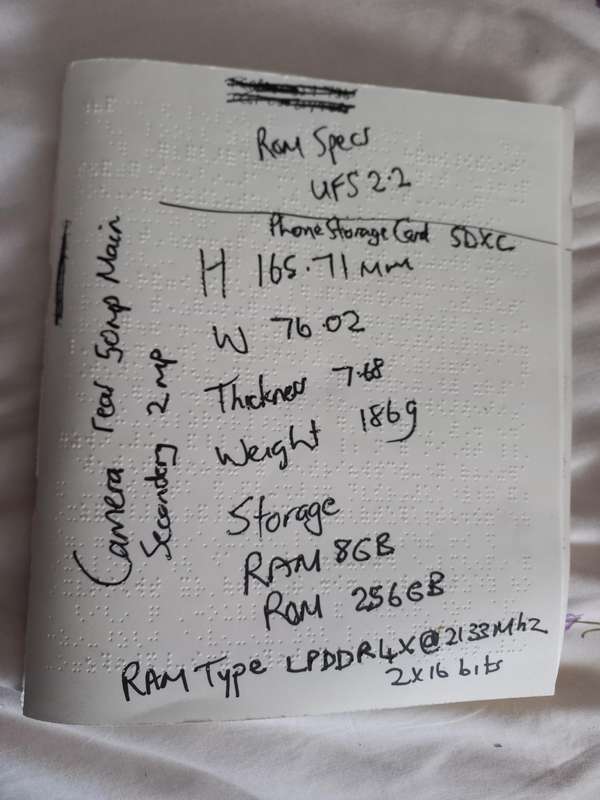 Rom Specs
UFS 2.2
Phone Storage Card SDXC
H 165.71 mm
W 76.02
Thickness 7.68
Weight 186g
Storage
RAM 8GB
ROM 256GB
RAM Type LPDDR4X@2133Mhz
2x16 bits
Camera rear 50mp Main
Secondary 2 mp